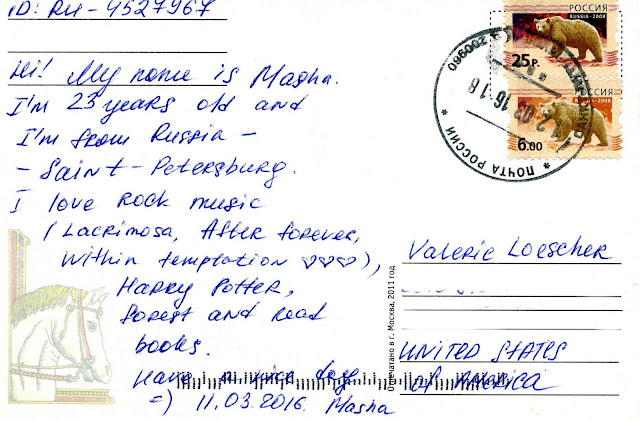 ID: RU-4527967
Hi! My name is Masha.
I'm 23 years old and
I'm from Russia -
- Saint-Petersburg.
I love Rock music
(Lacrimosa, After forever,
Within temptation ♡♡♡),
Harry Potter,
forest and read
books.
Have a nice day
=) 11.03.2016. Masha
РОССИЯ
RUSSIA·2008
25Р.
РОССИЯ
RUSSIA·2008
6.00
ПОЧТА РОССИИ
200960
Отпечатано в г. Москва, 2011 год
Valerie Loescher
UNITED STATES
of America